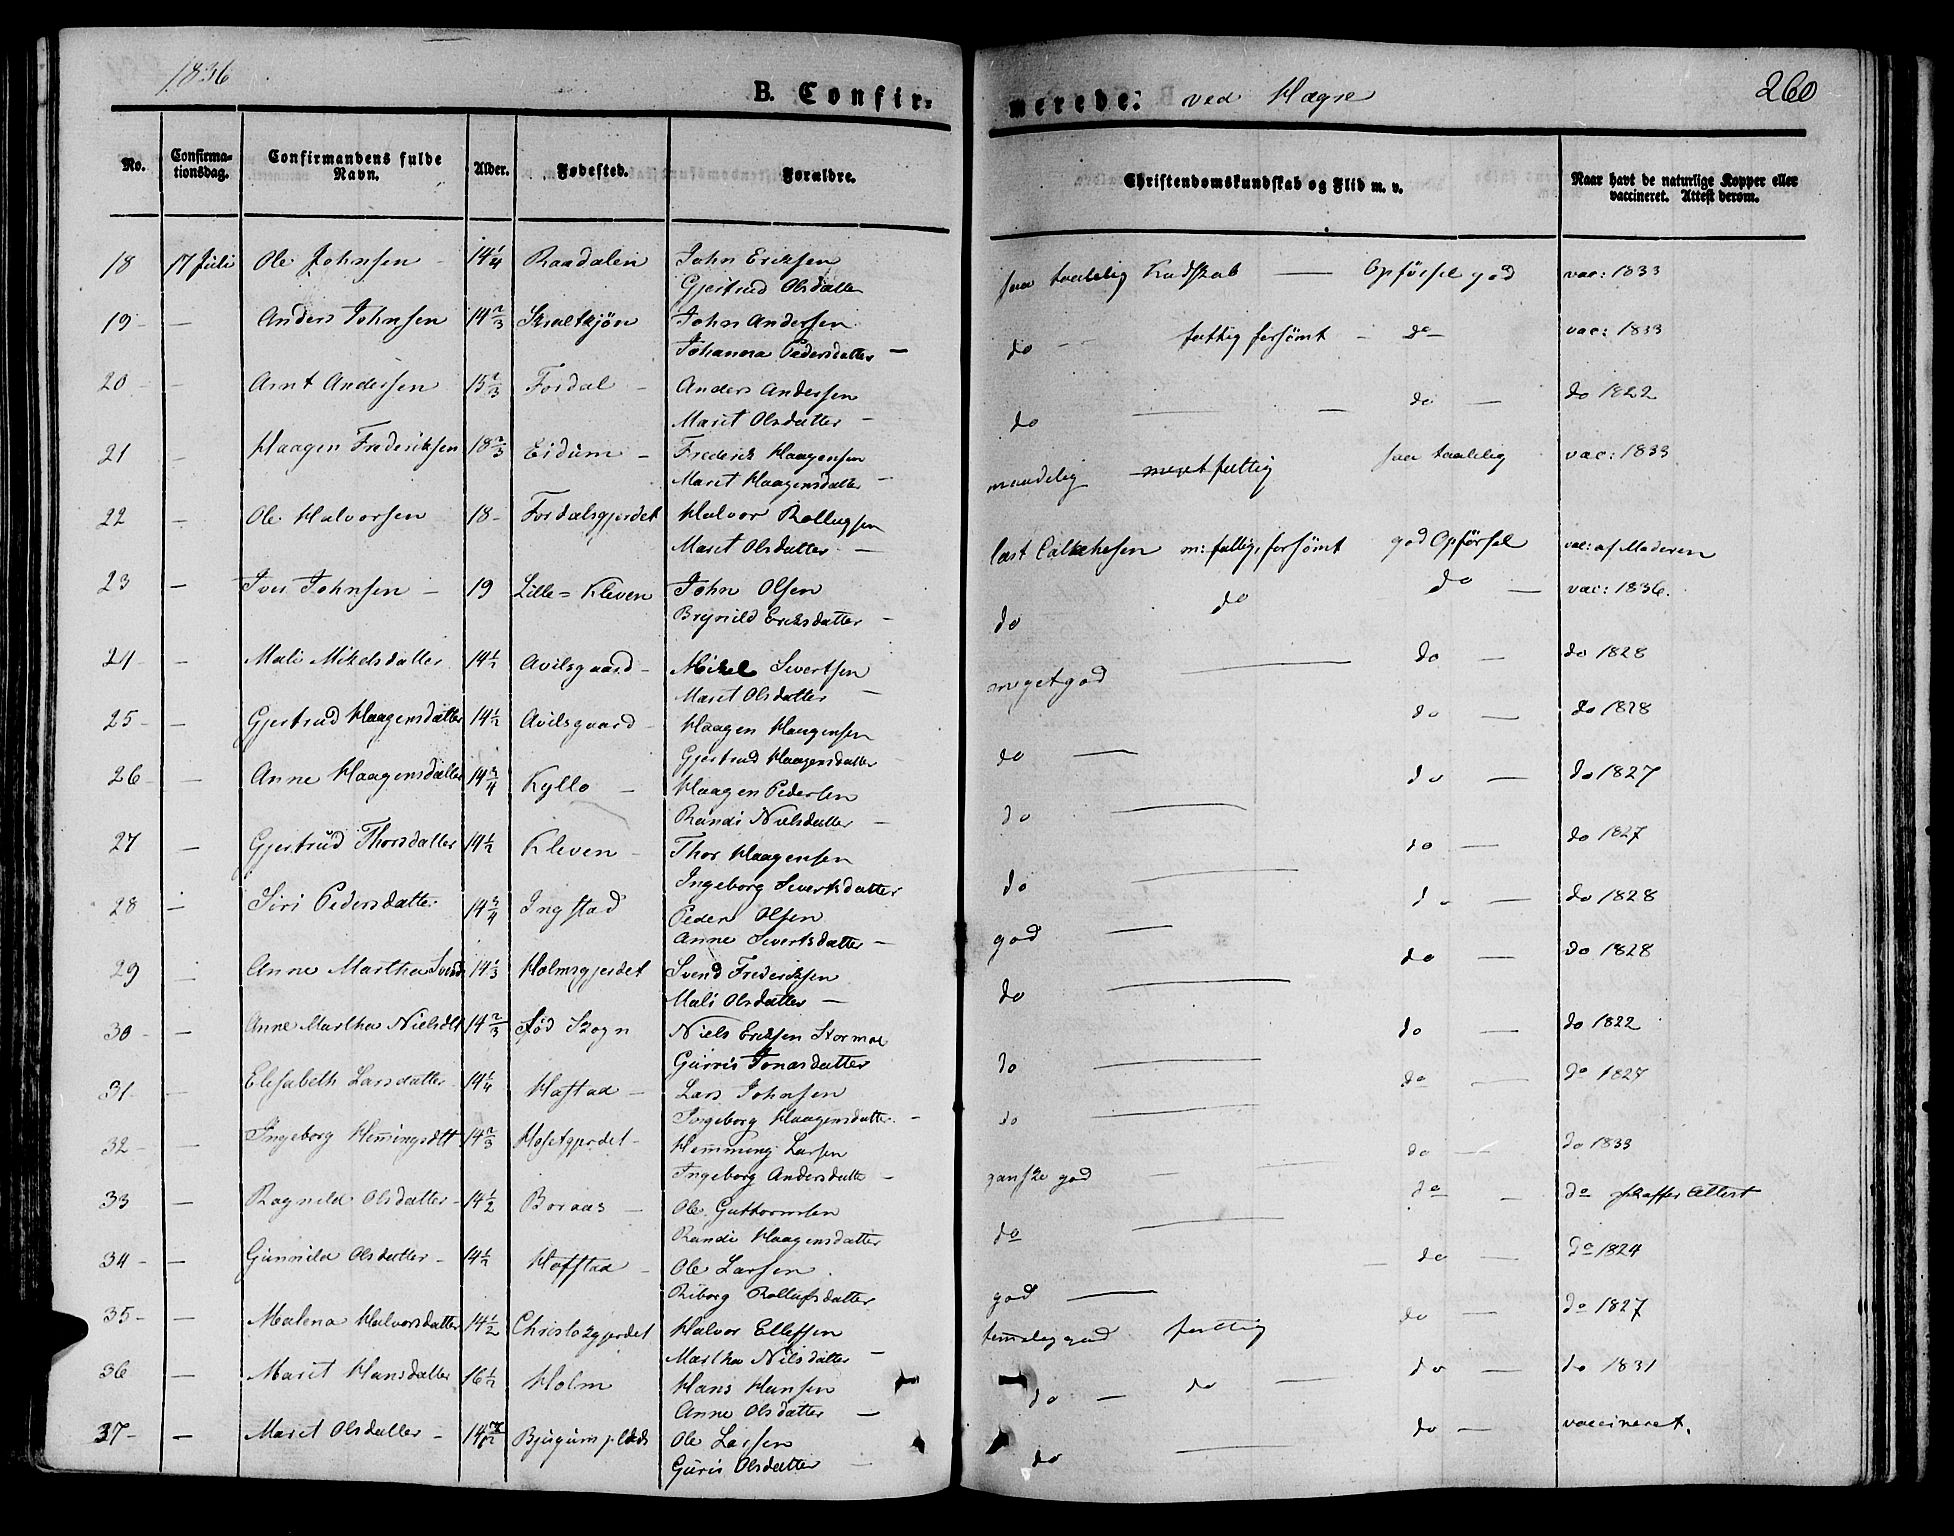 1836
B. Confir-
merede.
ved Hægre
260
No.
Confirma-
tionsdag.
Confirmandens fulde
Navn.
Alder.
Fødested.
Forældre.
Christendomskundskab og Flid m. v.
Naar havt de naturlige Kopper eller
vaccineret. Attest derom.
18 17 Juli Ole Johnsen - 14 1/4 Raadalen John Eriksen
Gjertrud Olsdatter
saa taalelig Kudskab — Opførsel god vac: 1833
19 - — Anders Johnsen 14 2/3 John Andersen
Johanna Pedersdatter —
do - - fattig forsømt - do - vac: 1833
20 - - Arnt Andersen 15 2/3 Fordal - Anders Andersen
Marit Olsdatter —
do — — do — do 1822
21 - Haagen Frederiksen 18 2/3 Eidum - Frederik Haagensen
Marit Haagensdatter —
maadelig meget fattig saa taalelig vac: 1833
22 - Ole Halvorsen 18 - Fordalsgjerdet Halvor Rollugsen
Marit Olsdatter —
læst m: fattig, forsømt god Opførsel vac: af Moderen
23 — Iver Johnsen - 19 Lille = Kleven John Olsen
Brynild Eriksdatter -
do do do — vac: 1836.
24 - - Mali Mikelsdatter 14 1/2 Avilsgaard - Mikel Sivertsen
Marit Olsdatter —
meget god — do — do 1828
25 - - Gjertrud Haagensdatter 14 1/2 Avilsgaard - Haagen Haagensen
Gjertrud Haagensdatter
do — do — do 1828
26 - - Anne Haagensdatter 14 3/4 Kyllo - Haagen Pedersen
Randi Nielsdatter -
do — do — do 1827
27 — Gjertrud Thorsdatter 14 1/2 Kleven - Thor Haagensen
Ingeborg Sivertsdatter
do — do — do 1827
28 — Siri Pedersdatter 14 3/4 Ingstad Peder Olsen
Anne Sivertsdatter —
god — do — do 1828
29 - Anne Martha Svend 14 1/3 Holmsgjerdet Svend Frederiksen
Mali Olsdatter —
do — do — do 1828
30 - — Anne Martha Nielsdt 14 2/3 Niels Eriksen Stormoe
Gurris Jonasdatter
do — do — do 1822
31 - — Elisabeth Larsdatter 14 1/4 Hofstad - Lars Johnsen
Ingeborg Haagensdatter. -
do — do — do 1827
32 - — Ingeborg Hemingsdtt 14 2/3 Hofstgjerdet - Hemming Larsen
Ingeborg Andersdatter -
ganske god — — do — do 1833
33 — Ragnild Olsdatter - 14 1/2 Boraas — Ole Guttormsen
Randi Haagensdatter
do — do — do skaffer Attest
34 - — Gunnild Olsdatter - 14 1/2 Hofstad - Ole Larsen
Riborg Rollufsdatter
god — do — do 1824
35 - - Malena Halvorsdatter 14 1/2 Halvor Ellefsen
Martha Nilsdatter —
temelig god fattig do — do 1827
36 — Marit Hansdatter 16 1/2 Holm Hans Hansen
Anne Olsdatter —
do — do — do — do 1831
37 - — Marit Olsdatter - Ole Larsen
Guris Olsdatter —
do — do — vaccineret.